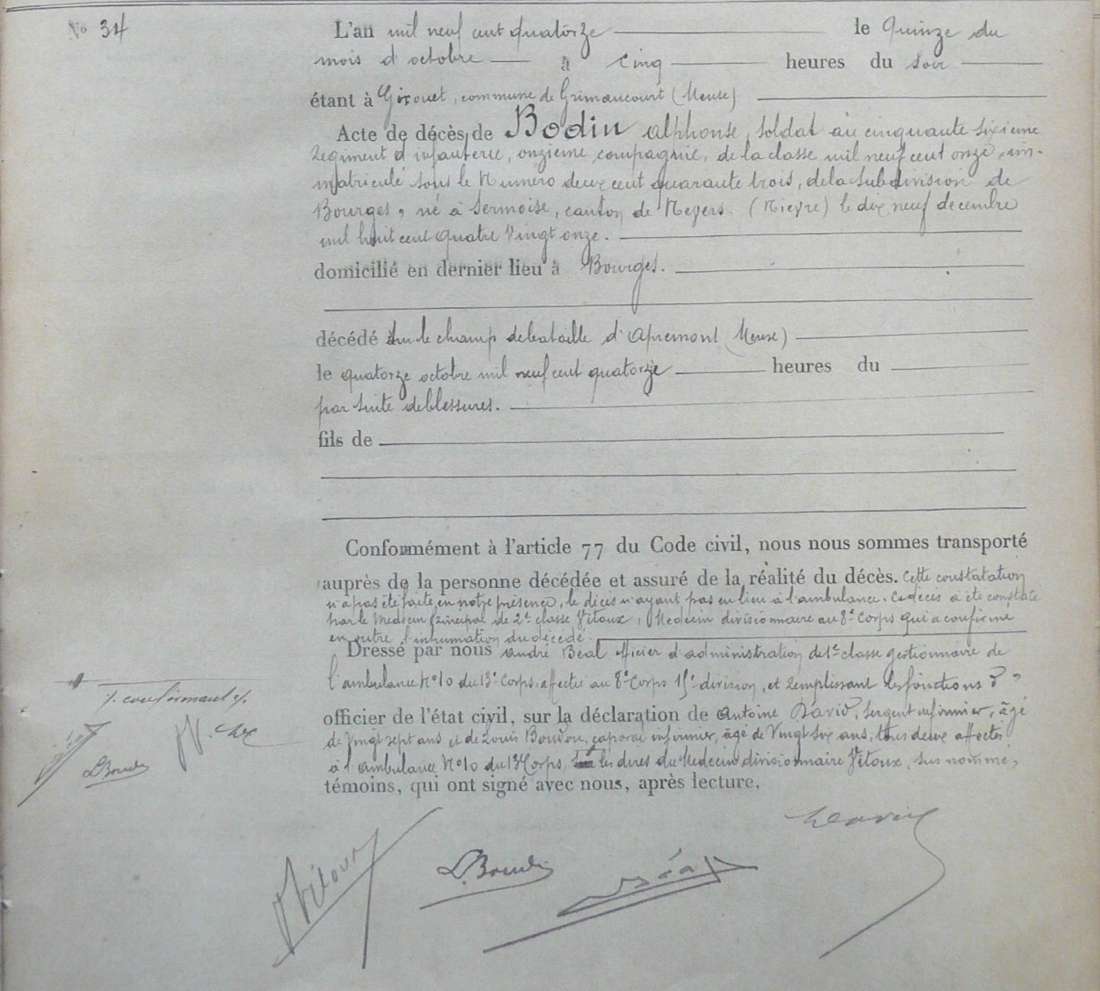 No 34
L'an mil neuf cent quatorze le quinze du
mois d'octobre à cinq heures du soir
étant à Girouet, commune de Grimaucourt (Meuse)
Acte de décès de Bodin Alphonse, soldat au cinquante sixième
Régiment d'infanterie, onzième compagnie, de la classe mil neuf cent onze, im-
matriculé sous le Numéro deux cent quarante trois, de la subdivision de
Bourges, né à Sermoise, canton de Nevers (Nièvre) le dix neuf décembre
mil huit cent quatre vingt onze.
domicilié en dernier lieu à Bourges.
décédé sur le champ de bataille d'Apremont (Meuse)
le quatorze octobre mil neuf cent quatorze heures du
par suite de blessures.
fils de
Conformément à l'article 77 du Code civil, nous nous sommes transporté
auprès de la personne décédée et assuré de la réalité du décès. Cette constatation
n'a pas été faite en notre présence, le décès n'ayant pas eu lieu à l'ambulance. Ce décès a été constaté
par le Médecin Principal de 2e classe Vitoux, Médecin divisionnaire au 8e Corps qui a confirmé
en outre l'inhumation du décédé.
Dressé par nous André Béal officier d'administration de 1e classe gestionnaire de
l'ambulance No 10 du 13e Corps, affectée au 8e Corps 15e division, et remplissant les fonctions d'
officier de l'état civil, sur la déclaration de Antoine David, sergent infirmier, âgé
de vingt sept ans et de Louis Boudou, caporal infirmier, âgé de vingt six ans, tous deux affectés
à l'ambulance No 10 du 13e Corps, les dires du Médecin divisionnaire Vitoux, sus nommé,
témoins, qui ont signé avec nous, après lecture.
Vitoux
L. Boud
Béal
David